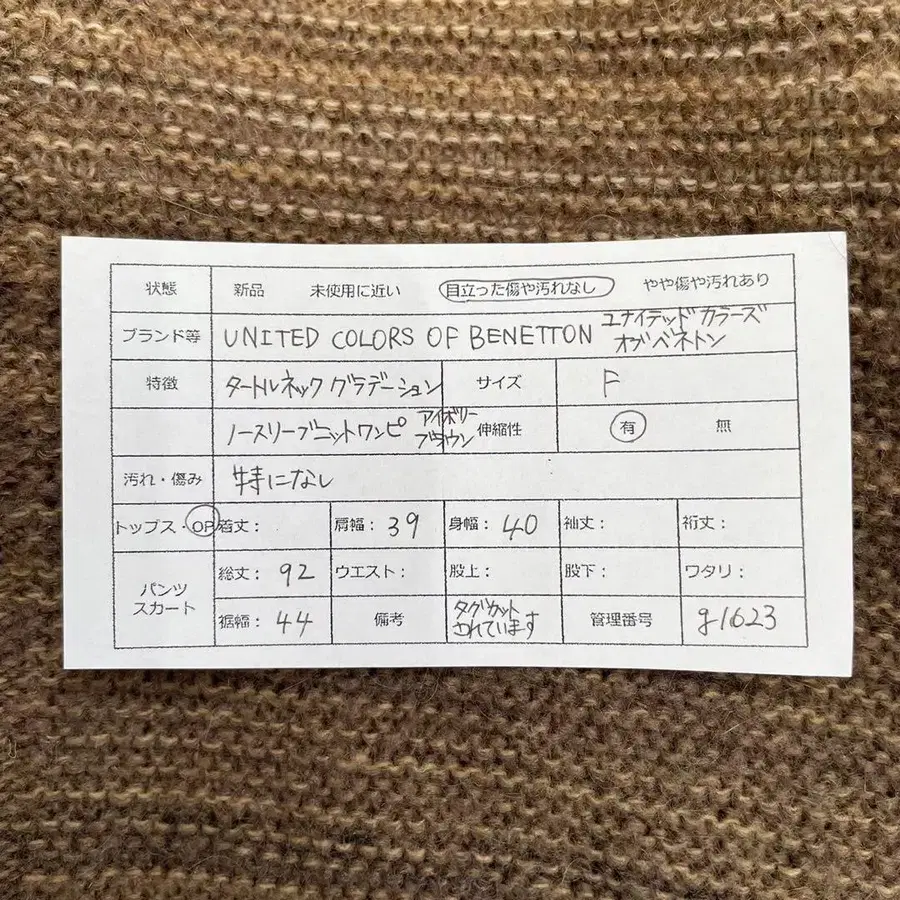 状態 新品 未使用に近い 目立った傷や汚れなし やや傷や汚れあり
ブランド等 UNITED COLORS OF BENETTON ユナイテッド カラーズ
オブ ベネトン
特徴 タートルネック グラデーション サイズ F
ノースリーブニットワンピ アイボリー
ブラウン 伸縮性 有 無
汚れ・傷み 特になし
トップス・OP 着丈: 肩幅: 39 身幅: 40 袖丈: 裄丈:
パンツ
スカート
総丈: 92 ウエスト: 股上: 股下: ワタリ:
裾幅: 44 備考 タグカット
されています 管理番号 g1623